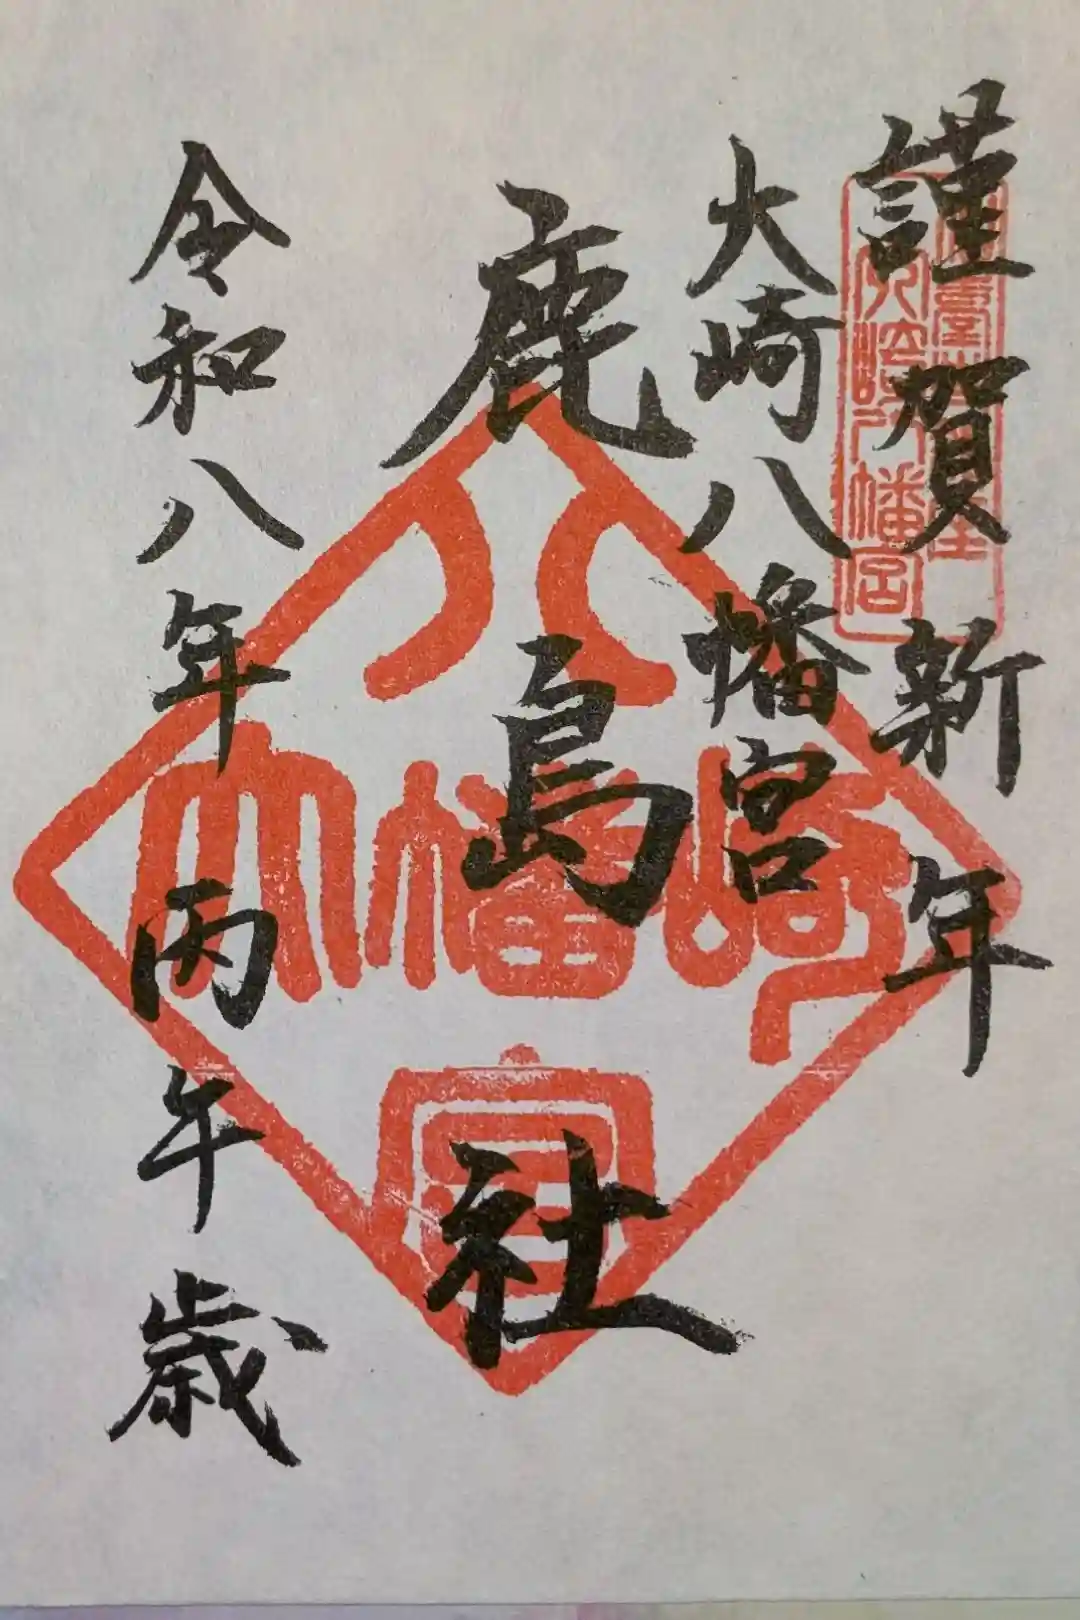 謹賀新年
大崎八幡宮
鹿島社
令和八年丙午歳
八幡宮
大崎
大崎八幡宮